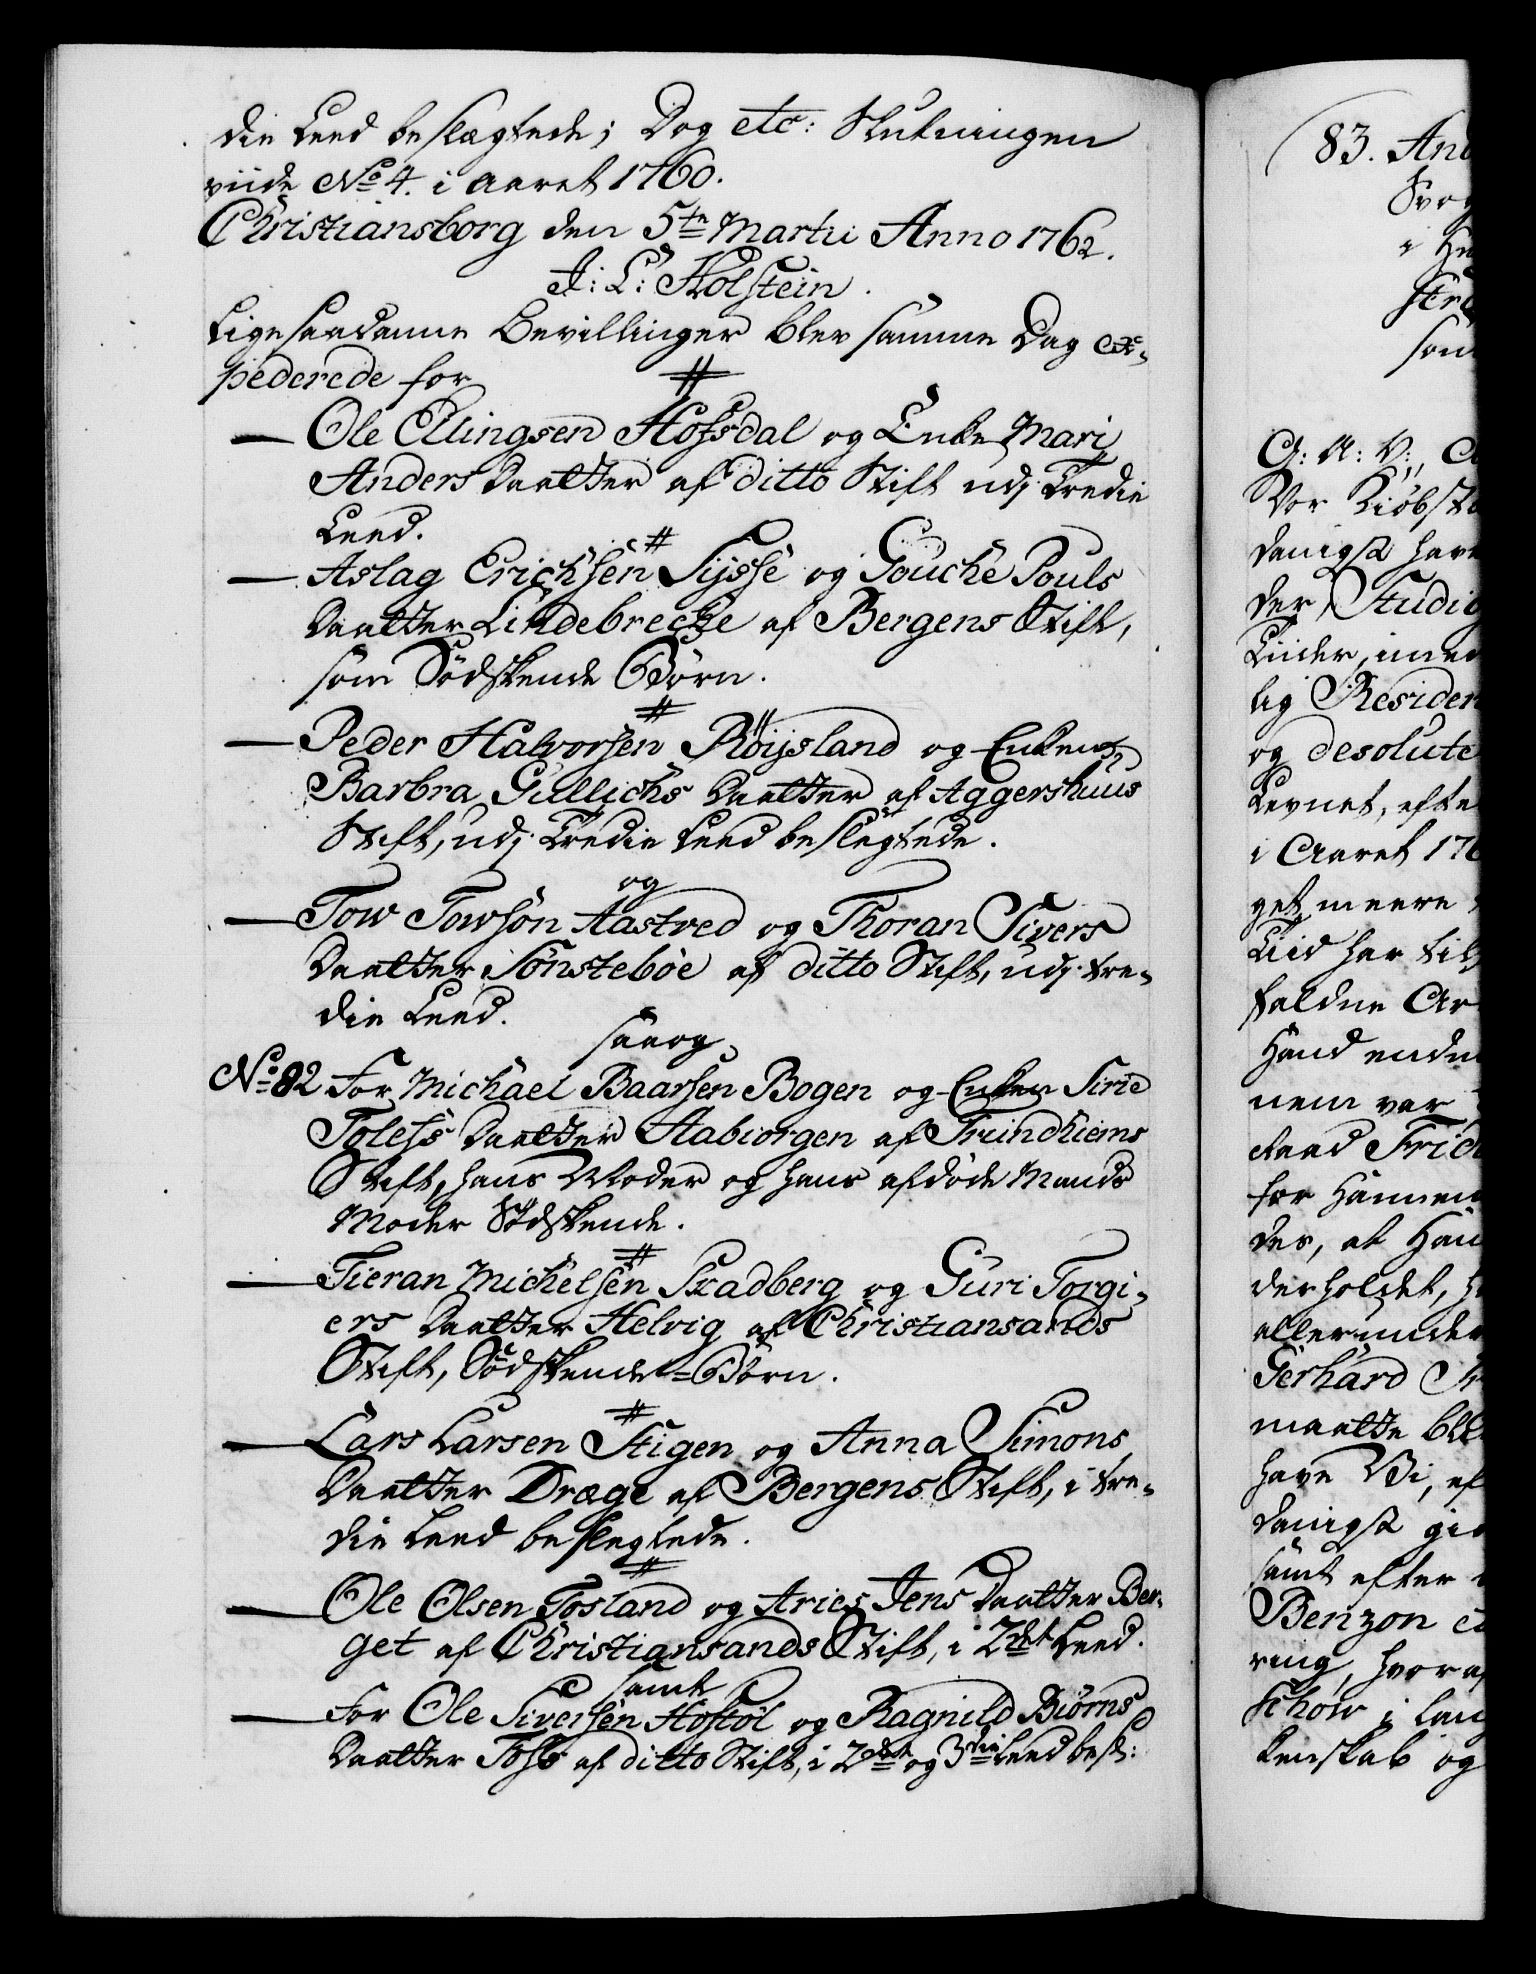 die Leed beslægtede; Dog etc: Slutningen
viide No 4. i Aaret 1760.
Christiansborg den 5te Martii Anno 1762.
J: L: Holstein.
Ligesaadanne Bevillinger blev samme Dag ex-
pederede for
Ole Ellingsen Hofsdal og Enke Mari
Anders Daatter af ditto Stift udj Tredie
Leed.
Aslag Erichsen Sysse og Gouche Pouls
Daatter Lindebrecke af Bergens Stift,
som Södskende Börn.
Peder Halvorsen Röijsland og Enken
Barbra Gullichs Daatter af Aggershuus
Stift, udj Tredie Leed beslægtede.
og
Tow Towsön Aastved og Thoran Sivers
Daatter Sönsteböe af ditto Stift, udj tre-
die Leed.
saaog
No 82 For Michael Baarsen Bogen og Enken Sirie
Tolefs Daatter Aabiorgen af Trundhiems
Stift, hans Moder og hans afdöde Mands
Moder Södskende.
Tieran Michelsen Skadberg og Guri Torgi-
ers Daatter Helvig af Christiansands
Stift, Södskende-Börn.
Lars Larsen Stigen og Anna Simons
Daatter Dræge af Bergens Stift, i tre-
die Leed beslegtede.
Ole Olsen Tosland og Aries Jens Daatter Ber-
get af Christiansands Stift, i 2det Leed.
samt
For Ole Siversen Hostöl og Ragnild Biörns
Daatter Foss af ditto Stift, i 2det og 3die Leed besl:
83. And
Svog
i
som
G: A: V:,
Vor Kiöbst
danigst have
der, Studio
Tiider, imed
lig Residen
og desolute
Levnet, efte
i Aaret 176
get meere
Tiid har til
faldne Ar
Haand endn
nem var
for Hannem
des, at Han
derholdet, H
allerunder
Gerhard
maatte ble
have Vi, ef
danigst gio
samt efter
Benzon
ring, hvor af
Schow i Lan
kenskab og